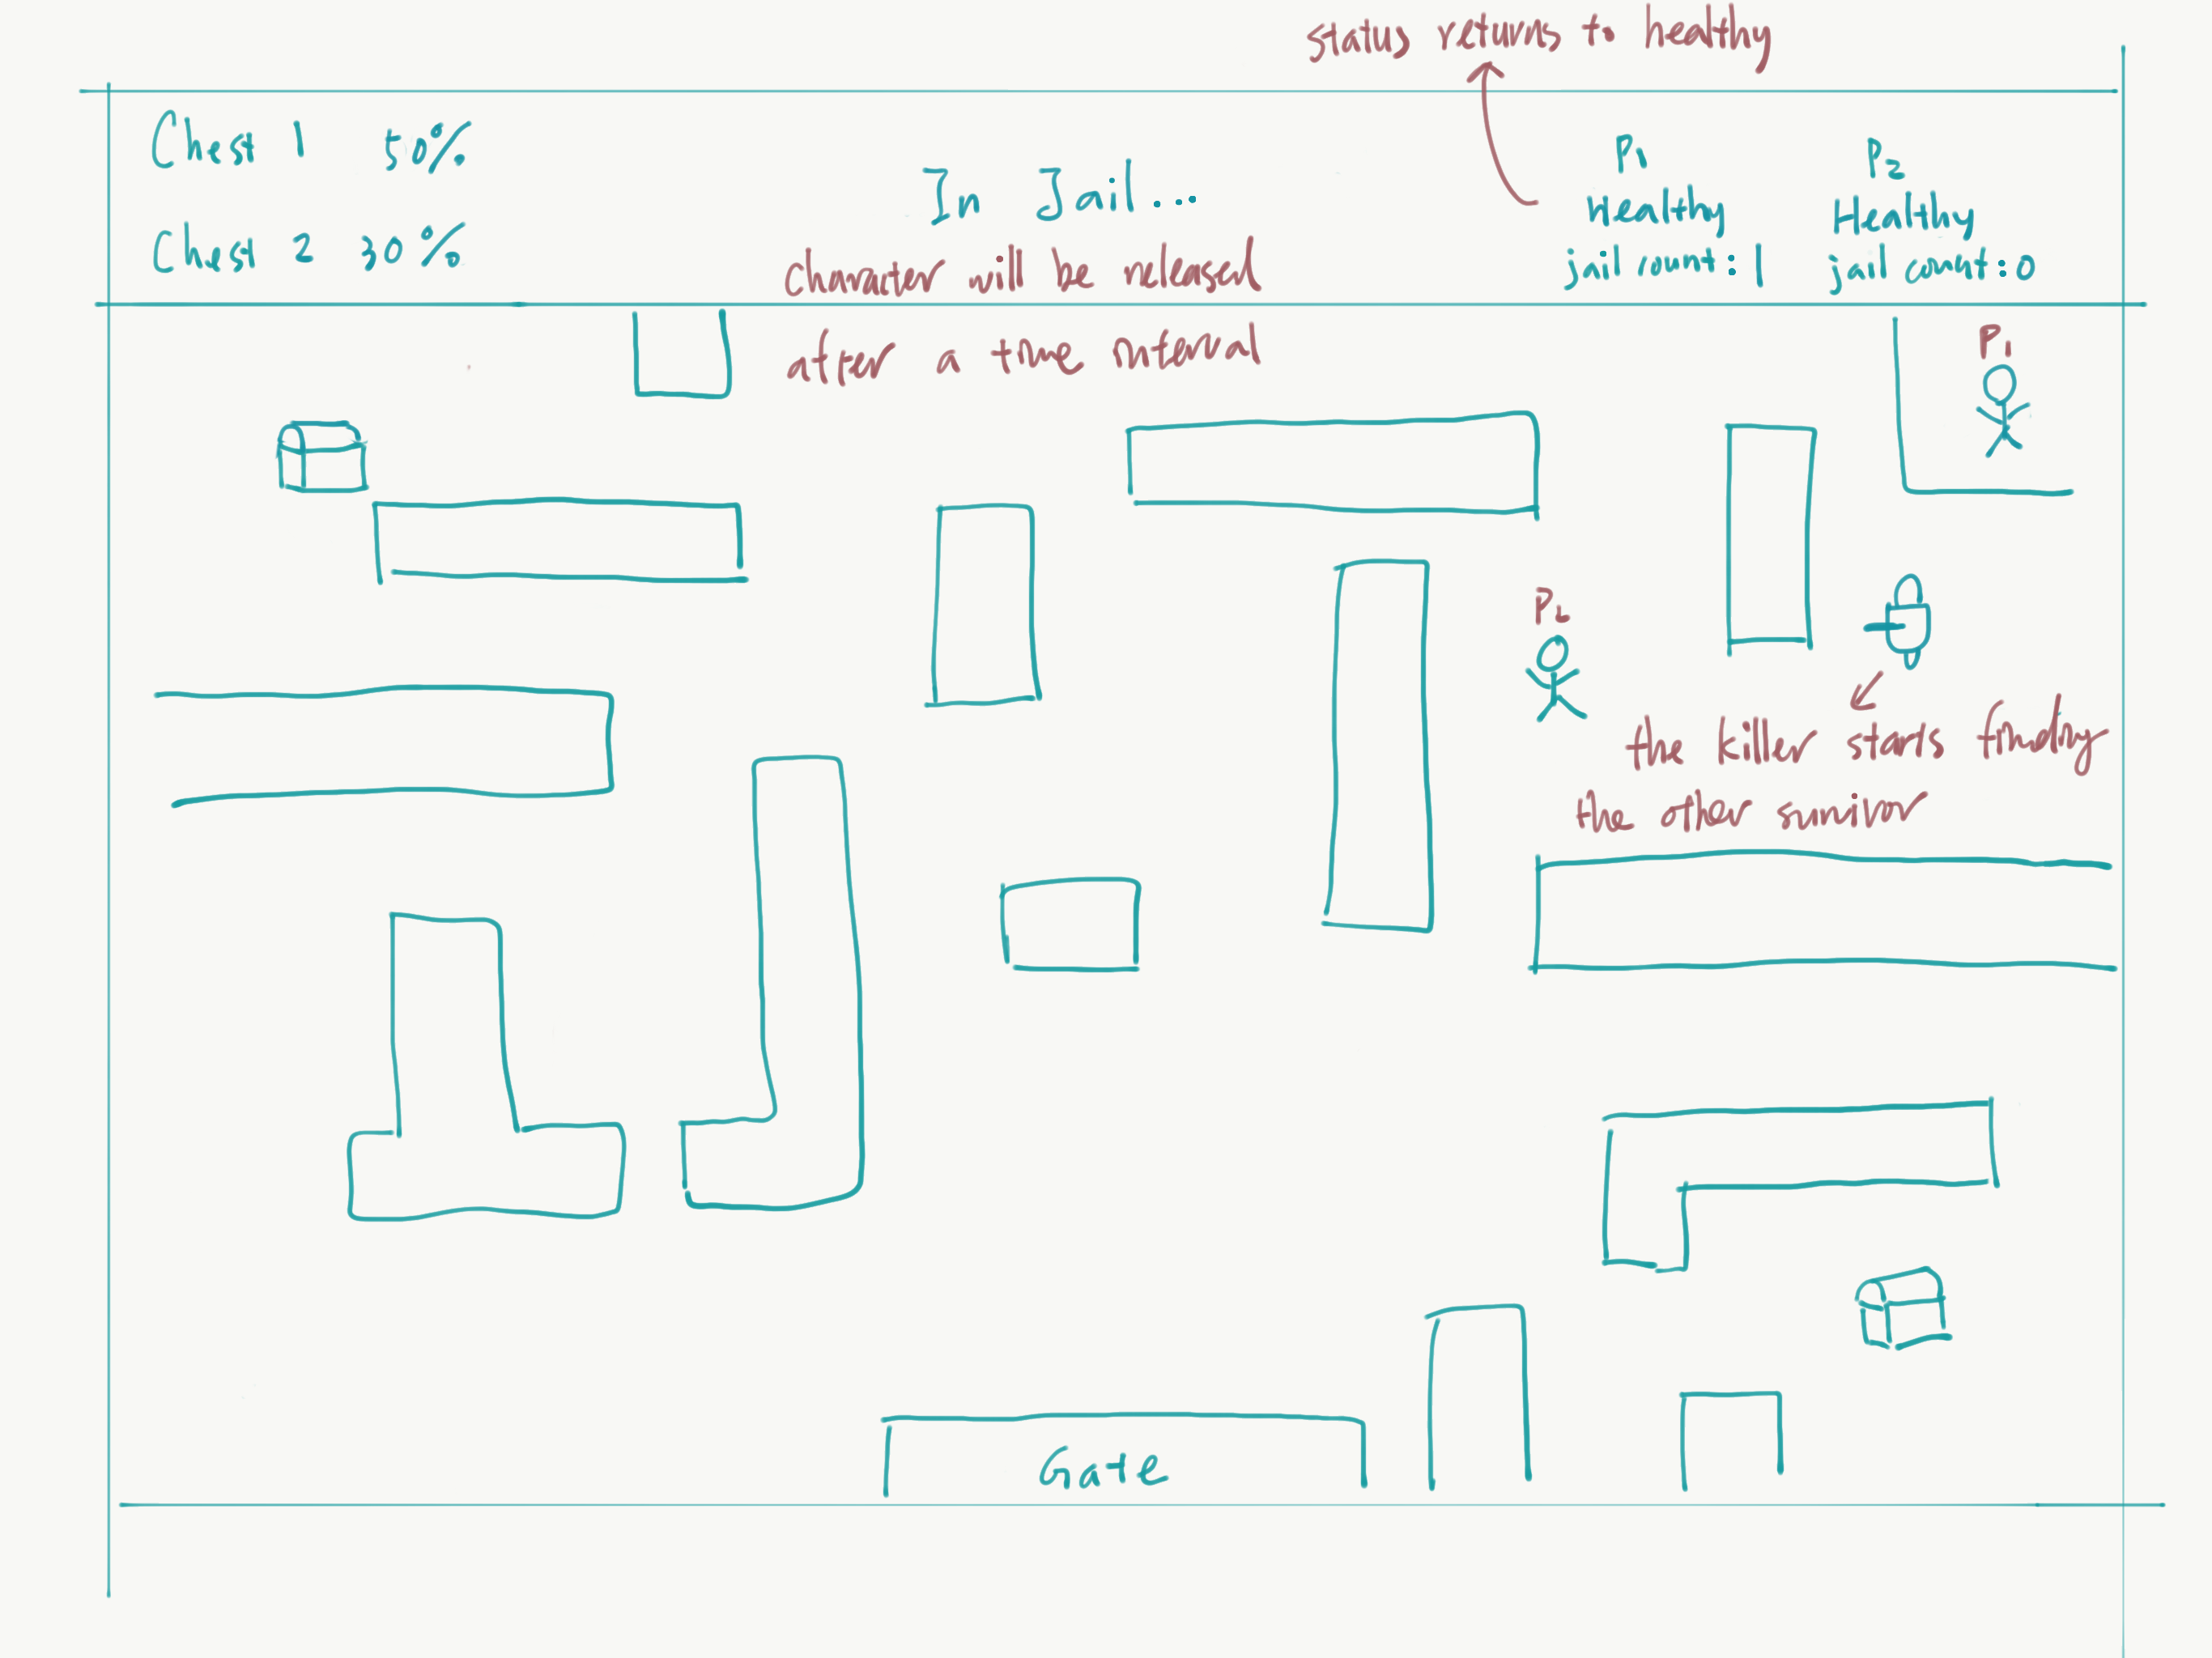 status returns to healthy
Chest 1 50%
Chest 2 30%
In Jail...
character will be released
after a time interval
P1
Healthy
jail count: 1
P2
Healthy
jail count: 0
P1
P2
the killer starts finding
the other survivor
Gate